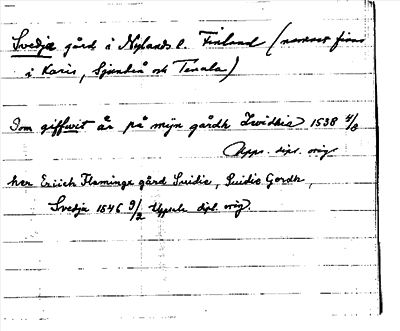 Svedja gård i Nylands l. Finland (namnet finns
i Karis, Sjundeå och Tenala)
Som giffwit är på mijn gårdh Swidhia 1538 4/8
Upps. dipl. orig.
her Eriich Flamingx gård Suidie, Suidie Gordh,
Svedja 1546 9/2 Uppsala dipl. orig.